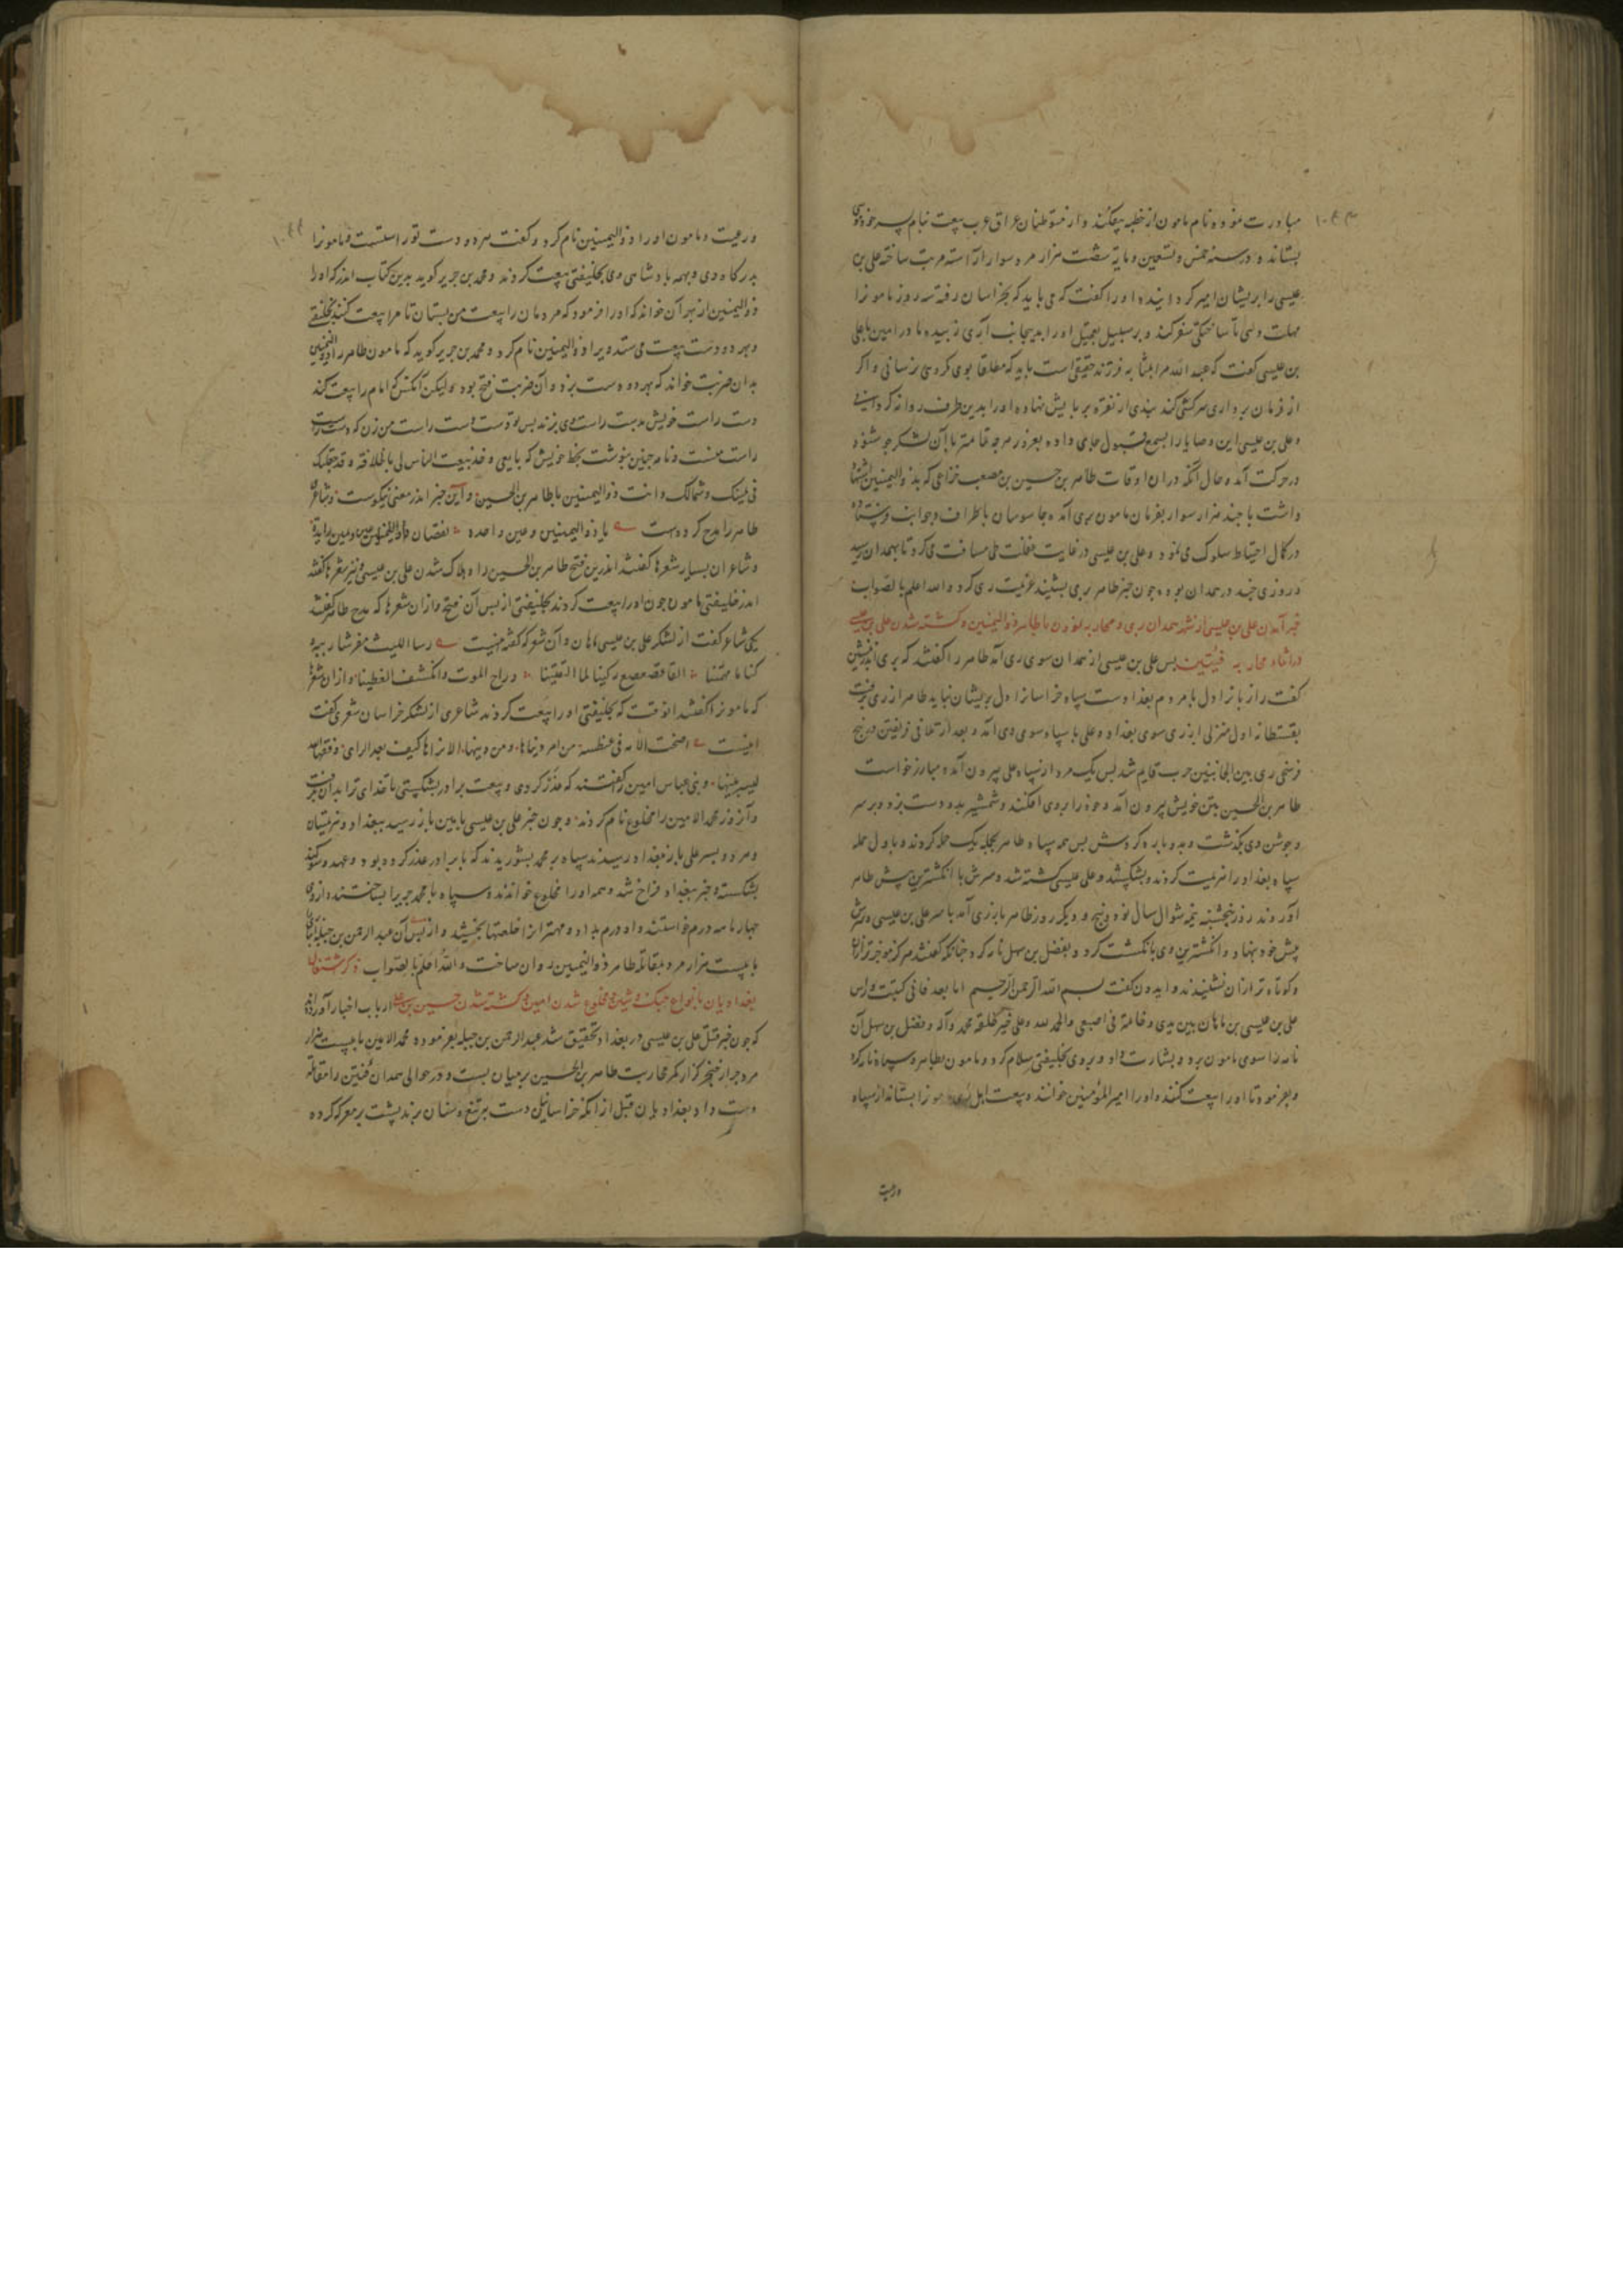 مبادرت نموده نام مامون از خطبه بیفکند و از متوطنان عراق عرب بیعت بنام پسر خود موسی
بستاند و در سنه خمس و تسعین و مایه شصت هزار مرد سوار آراسته مرتب ساخته علی بن
عیسی را بریشان امیر گردانیده او را کفت که می باید که بخراسان رفته سه روز مامون را
مهلت دهی تا ساختکی سفر کند و بر سبیل تعجیل او را بدینجانب آری زبیده مادر امین با علی
بن عیسی کفت که عبد الله مرا بمثابه فرزند حقیقی است باید که مطلقا بوی مکروهی نرسانی و اکر
از فرمان برداری سرکشی کند بندی از نقره بر پایش نهاده او را بدین طرف روانه کردانی
و علی بن عیسی این وصایا را بسمع قبول جای داده بعز و مرچه تمامتر با آن لشکر
در حرکت آمد و حال آنکه دران اوقات طاهر بن حسین بن مصعب خزاعی که بذو الیمینین اشتهار
داشت با چند هزار سوار بفرمان مامون بری آمده جاسوسان باطراف و جوانب فرستاده
در کمال احتیاط سلوک می نمود و علی بن عیسی در غایت غفلت طی مسافت می کرد تا بهمدان رسید
و روزی چند در همدان بود و چون خبر طاهر بری بشنید عزیمت ری کرد والله اعلم بالصواب
خبر آمدن علی بن عیسی از شهر همدان بری و محاربه نمودن با طاهر ذو الیمینین و کشته شدن علی بن عیسی
در اثناء محاربه فئتین پس علی بن عیسی از همدان سوی ری آمد طاهر را کفتند که بری اندر نشین
کفت راز با ز اول با مردم بغداد است سپاه خراسانرا دل بریشان نباید طاهر از ری برفت
بقسطانه اول منزلی از ری سوی بغداد و علی با سپاه سوی وی آمد و بعد از تلاقی فریقین در پنج
فرسنگی ری بین الجانبین حرب قایم شد پس یک مرد از سپاه علی بیرون آمده مبارز خواست
طاهر بن الحسین بتن خویش بیرون آمد و خود را بروی افکند و شمشیر بدو دست بزد و بر سر
و جوشن وی بگذشت و بدو پاره کردش پس همه سپاه طاهر بجمله یک حمله کردند و باول حمله
سپاه بغداد را هزیمت کردند و بشکستند و علی عیسی کشته شد و سرش با انکشترین پیش طاهر
آوردند روز پنجشنبه نیمه شوال سال نود و پنج و دیکر روز طاهر باز ری آمد با سر علی بن عیسی و سرش
پیش خود بنهاد و انکشترین وی بانکشت کرد و بفضل بن سهل نامه کرد چنانکه کفتند هرکز موجزتر ازان
و کوتاه تر ازان نشنیدند و ایدون کفت بسم الله الرحمن الرحیم اما بعد فانی کتبت وراس
علی بن عیسی بن ماهان بین یدی وخاتمه فی اصبعی والحمد لله وعلی خیر خلقه محمد وآله و فضل بن سهل آن
نامه را سوی مامون برد و بشارت داد و بروی بخلیفتی سلام کرد و مامون بطاهر و سپاه نامه کرد
و بفرمود تا او را بیعت کنند و او را امیر المؤمنین خوانند و بیعت اهل ری مامون را بستاند از سپاه
و رعیت
و رعیت و مامون او را ذو الیمینین نام کرد و کفت هر دو دست تو راستست و مامون را
بدرکاه وی و بهمه پادشاهی وی بخلیفتی بیعت کردند و محمد بن جریر کوید بدین کتاب اندر که او را
ذو الیمینین از بهر آن خواند که او را فرمود که مردمان را بیعت من بستان تا مرا بیعت کنند بخلیفتی
و بهر دو دست بیعت می ستد ویرا ذو الیمینین نام کرد و محمد بن جریر کوید که مامون طاهر را ذو الیمینین
بدان ضربت خواند که بهر دو دست بزد و آن ضربت فتح بود ولیکن آنکس که امام را بیعت کند
دست راست خویش بدست راست وی بزند پس تو دست راست من زن که دست راست
راست منست و نامه چنین بنوشت بخط خویش که بایعی و خذ بیعت الناس لی بالخلافه و قد جعلتک
فی یمینک و شمالک و انت ذو الیمینین یا طاهر بن الحسین و این خبر اندر معنی نیکوست و شاعری
طاهر را مدح کرده است یا ذا الیمینین وعین واحده نقصان عین ویمین زایده
و شاعران بسیار شعرها کفتند اندرین فتح طاهر بن الحسین را و هلاک شدن علی بن عیسی و نیز شعرها کفتند
اندر خلیفتی مامون چون او را بیعت کردند بخلیفتی از پس آن فتح و ازان شعرها که مدح طاهر کفتند
یکی شاعر کفت از لشکر علی بن عیسی ماهان و آن شعر که کفته اینست
که مامون را کفتند انوقت که بخلیفتی او را بیعت کردند شاعری از لشکر خراسان شعری کفت
اینست اصبحت الامه فی غبطه من امر دنیاها ومن دینها
و بنی عباس امین را کفتند که غدر کردی و بیعت برادر بشکستی تا خدای ترا بدان بگرفت
و آنروز محمد الامین را مخلوع نام کردند و چون خبر علی بن عیسی بامین باز رسید ببغداد و هزیمتیان
و هر دو پسر علی باز بغداد رسیدند سپاه بر محمد بشوریدند که با برادر غدر کرده بود و عهد و سوکند
بشکسته و خبر ببغداد فراخ شد و همه او را مخلوع خواندند و سپاه با محمد حرب را بساختند و از وی
چهار ماهه درم خواستند و او درم بداد و مهترانرا خلعتها بخشید و از پس آن عبد الرحمن بن جبله را
با بیست هزار مرد بمقاتله طاهر ذو الیمینین روان ساخت والله اعلم بالصواب ذکر
بغدادیان بانواع جنک و مخلوع شدن امین و کشته شدن حسین بن علی ارباب اخبار آورده اند
که چون خبر قتل علی بن عیسی در بغداد تحقیق شد عبد الرحمن بن جبله بفرموده محمد الامین با بیست هزار
مرد جرار خنجر گزار کمر محاربت طاهر بن الحسین بر میان بست و در حوالی همدان فئتین را مقاتله
دست داد بغدادیان قبل از آنکه خراسانیان دست بر تیغ و سنان برند پشت بر معرکه کرده